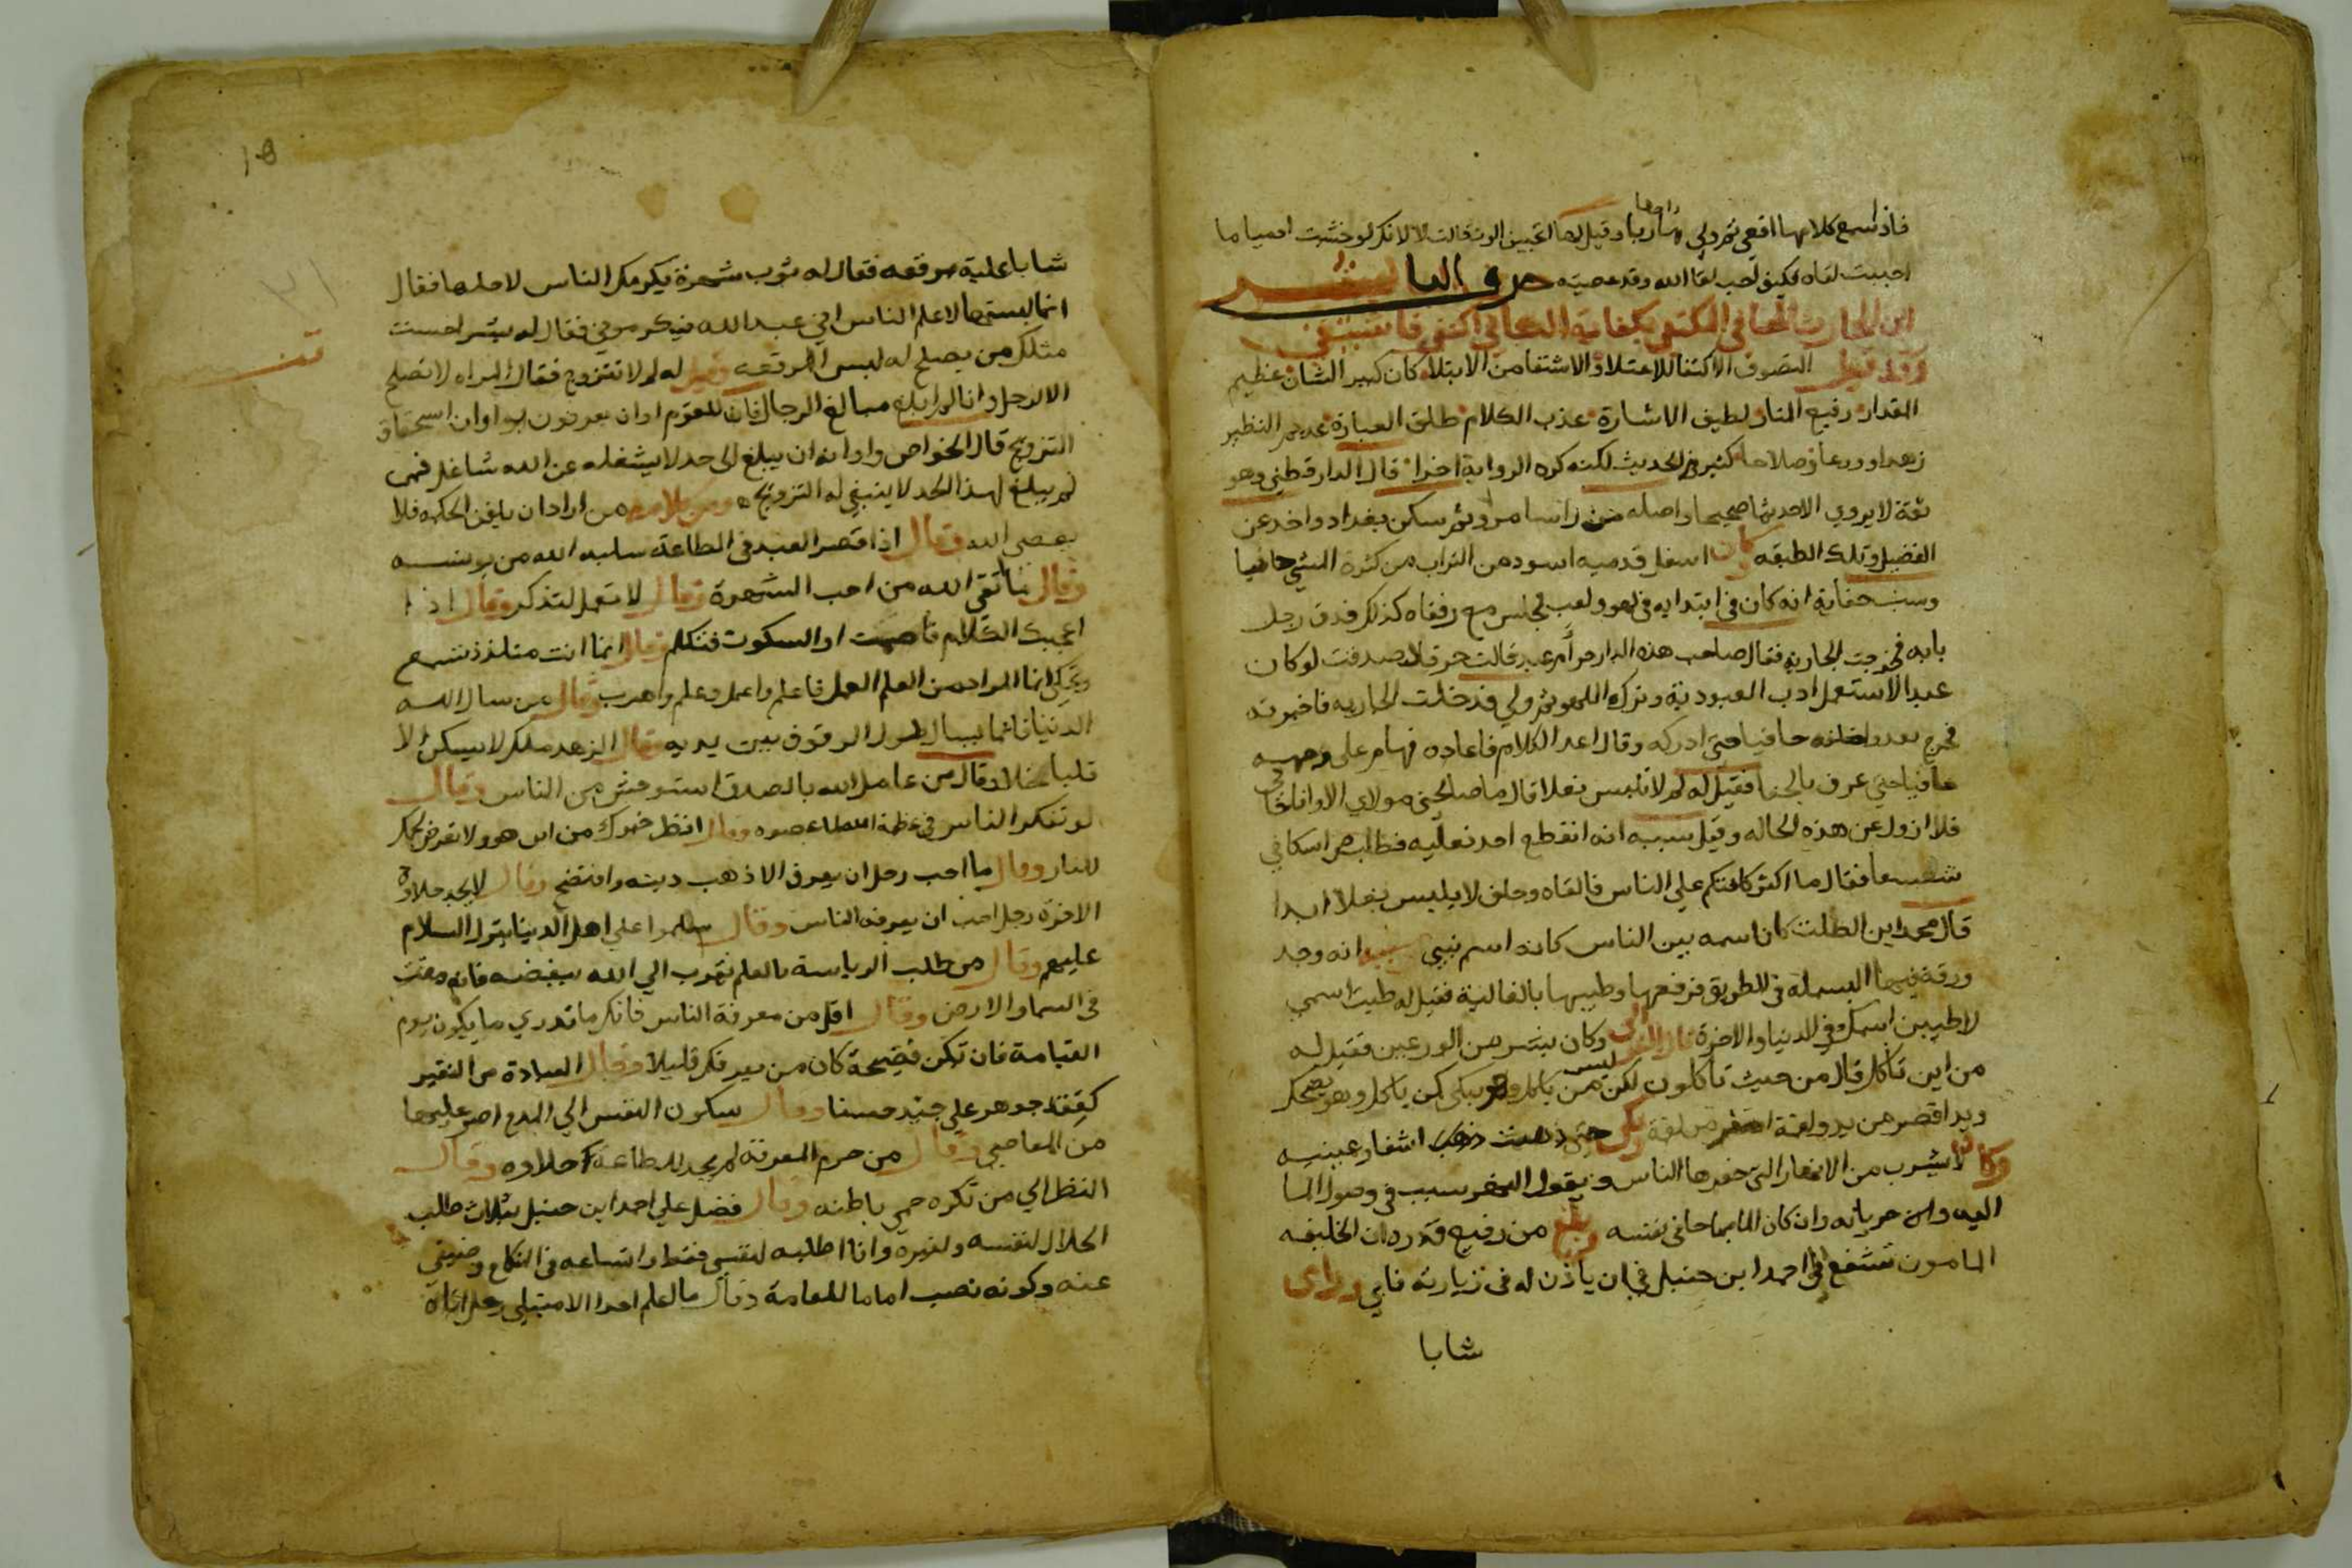 فاذا سمع كلامها اقعي ثم ولي هاربا وقيل لها اتحبين الموت قالت لا لانكر لو خشت ادميا ما
احببت لقاه فكيف احب لقا الله وقد عصيته حرف البا بشر
ابن الحارث الحافي المكتفي بكفاية الكافي اكتفي فاشتفي
وقد قيل التصوف الاكتفا للاعتلا والاشتفا من الابتلا كان كبير الشان عظيم
المقدار رفيع المنار لطيف الاشارة عذب الكلام طلق العبارة عديم النظير
زهدا وورعا وصلاحا كثير الحديث لكنه كره الرواية اخرا قال الدارقطني وهو
ثقة لا يروي الا حديثا صحيحا واصله من راسا مرو ثم سكن بغداد واخذ عن
الفضيل وتلك الطبقه كان اسفل قدميه اسود من التراب من كثرة المشي حافيا
وسبب حفايه انه كان في ابتدايه في لهو ولعب فجلس مع رفقاه كذلك فدق رجل
بابه فخرجت الجارية فقال صاحب هذه الدار حر أم عبد قالت حر قال صدقت لو كان
عبدا لاستعمل ادب العبودية وترك اللهو ثم ولي فدخلت الجاريه فاخبرته
فخرج يعدو خلفه حافيا حتي ادركه وقال اعد الكلام فاعاده فهام علي وجهه
حافيا حتي عرف بالحفا فقيل له لم لا تلبس نعلا قال ما صالحني مولاي الا وانا حافي
فلا ازول عن هذه الحاله وقيل سببه انه انقطع احد نعليه فطلب من اسكافي
شسعا فقال ما اكثر كلفتكم علي الناس فالقاه وحلف لا يلبس نعلا ابدا
قال محمد ابن الصلت كان اسمه بين الناس كانه اسم نبي سببه انه وجد
ورقة فيها البسملة في الطريق فرفعها وطيبها بالغالية فقيل له طيبت اسمي
لاطيبن اسمك في الدنيا والاخرة وكان بشر من الورعين فقيل له
من اين تاكل قال من حيث تاكلون لكن ليس من ياكل وهو يبكي كمن ياكل وهو يضحك
ويد اقصر من يد ولقمة اصغر من لقمة بكي حتي ذهبت اشفار عينيه
وكان لا يشرب من الانهار التي حفرها الناس ويقول النهر سبب في وصول الما
اليه وان كان الما مباحا في نفسه وبلغ من رفيع قدره ان الخليفه
المامون تشفع الي احمد ابن حنبل في ان ياذن له في زيارته فابي وراي
شابا
١٥
شابا علية مرقعه فقال له ثوب شهرة يكرمك الناس لاجلها فقال
انما لبستها لاعلم الناس اني عبد الله فيكرموني فقال له بشر احسنت
مثلك من يصلح له لبس المرقعه وقيل له لم لا تتزوج فقال المراه لا تصلح
الا لرجل وانا لم ابلغ مبالغ الرجال
التزويج قال الخواص وارادته ان يبلغ الي حد لا يشغله عن الله شاغل فمن
لم يبلغ لهذا الحد لا ينبغي له التزويج ومن كلامه من اراد ان يلقن الحكمه فلا
يعصي الله وقال اذا قصر العبد في الطاعة سلبه الله من يونسه
وقال ما اتقي الله من احب الشهرة وقال لا تعمل لتذكر وقال اذا
اعجبك الكلام فاصمت او السكوت فتكلم وقال انما انت متلذذ تسمع
وتحكي انما المراد من العلم العمل فاعلم واعمل وعلم واهرب وقال من سال الله
الدنيا فانما يسال طول الوقوف بين يديه وقال الزهد ملك لا يسكن الا
قلبا مخلا وقال من عامل الله بالصدق استوحش من الناس وقال
لو تفكر الناس في عظمة الله لما عصوه وقال انظر خبزك من اين هو ولا تعرض لحمك
للنار وقال ما احب رجل ان يعرف الا ذهب دينه وافتضح وقال لا يجد حلاوة
الاخرة رجل احب ان يعرفه الناس وقال سلموا علي اهل الدنيا بترك السلام
عليهم وقال من طلب الرياسة بالعلم تقرب الي الله ببغضه فانه مقت
في السما والارض وقال اقل من معرفة الناس فانك ما تدري ما يكون يوم
القيامة فان تكن فضيحة كان من يعرفك قليلا وقال العبادة من الفقير
كعقد جوهر علي جيد حسنا وقال سكون النفس الي المدح اضر عليها
من المعاصي وقال من حرم المعرفة لم يجد للطاعة حلاوه وقال
النظر الي من تكره حمي باطنه وقال فضل علي احمد ابن حنبل بثلاث طلب
الحلال لنفسه ولغيره وانا اطلبه لنفسي فقط واتساعه في النكاح وضيقي
عنه وكونه نصب اماما للعامة وقال ما اعلم احدا الا مبتلي